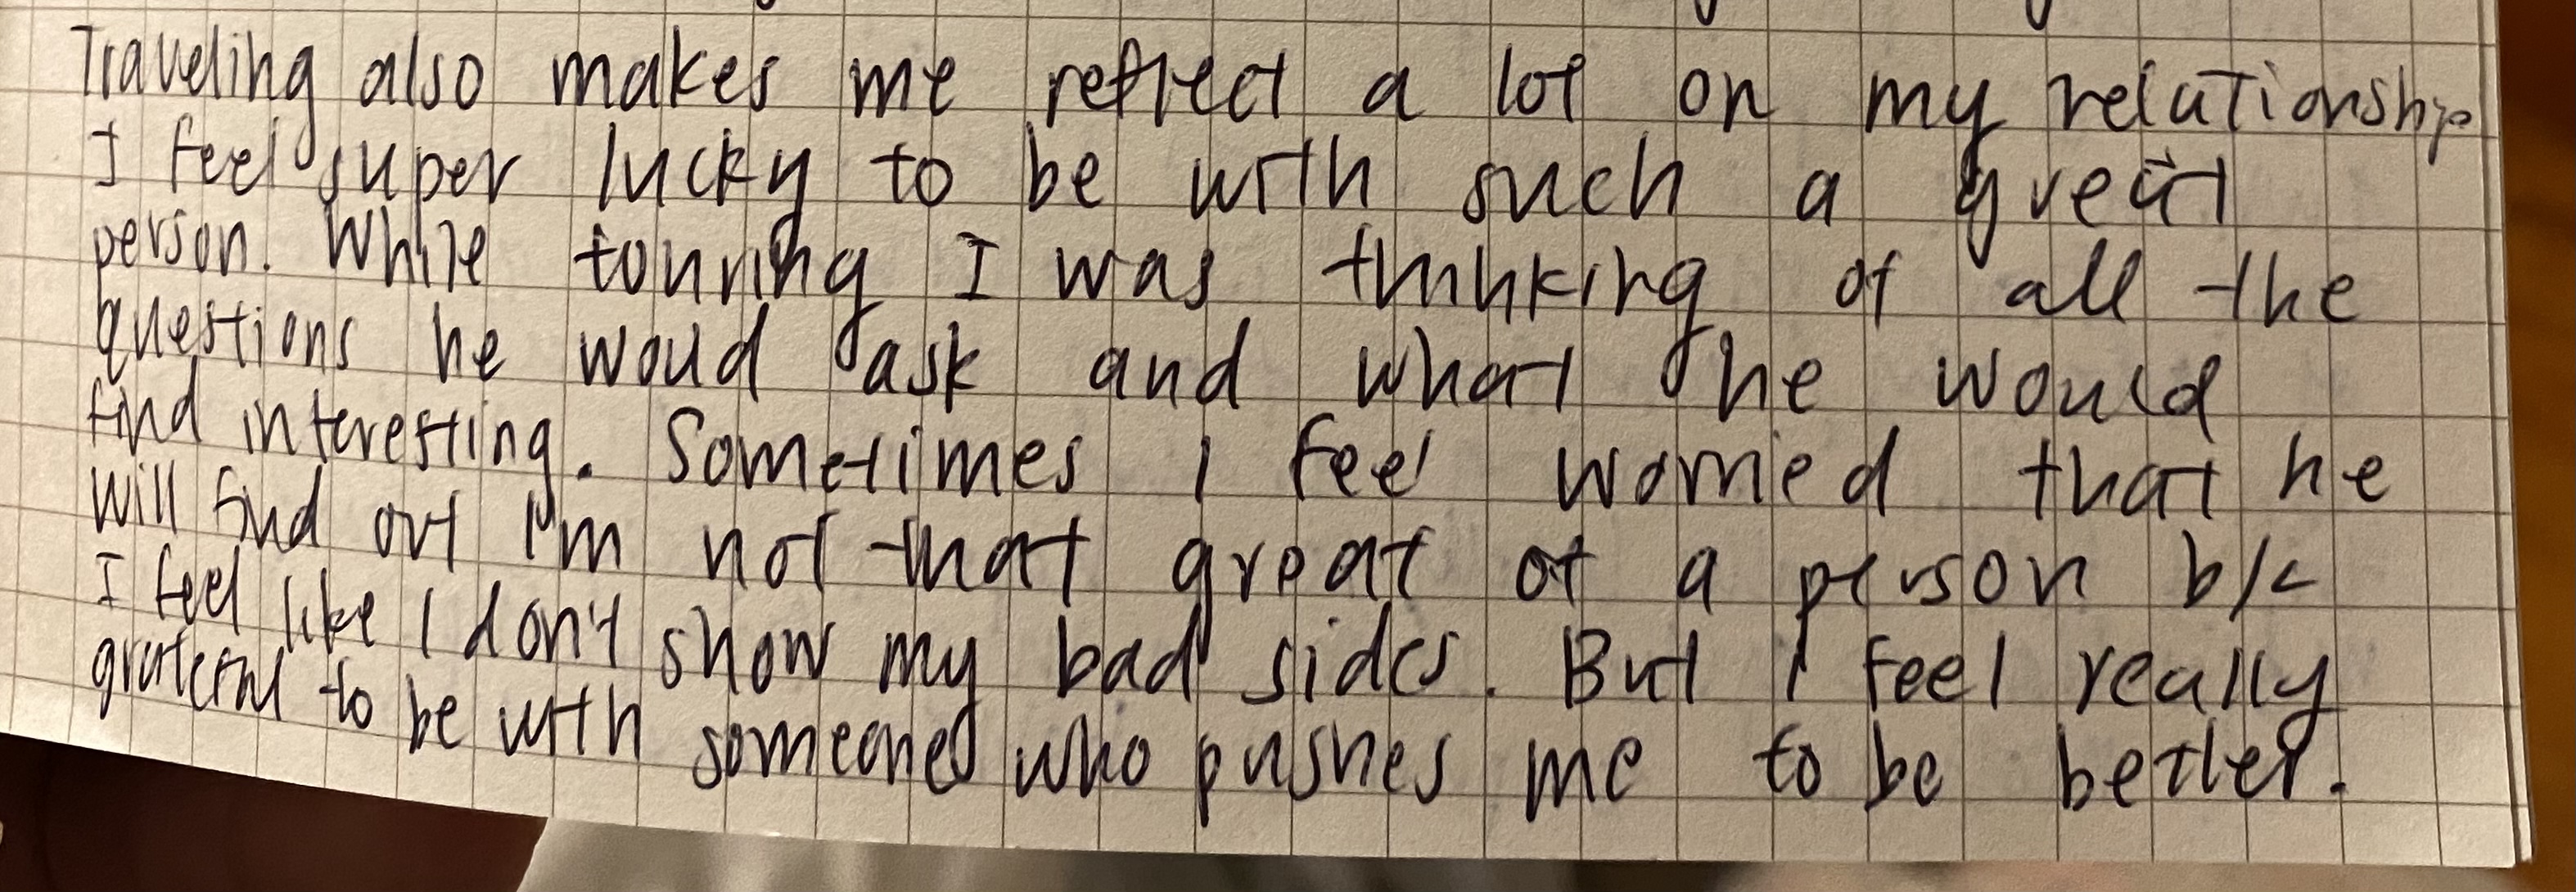 Traveling also makes me reflect a lot on my relationship
I feel super lucky to be with such a great
person. While touring I was thinking of all the
questions he would ask and what he would
find interesting. Sometimes I feel worried that he
will find out I'm not that great of a person b/c
I feel like I don't show my bad sides. But I feel really
grateful to be with someone who pushes me to be better.